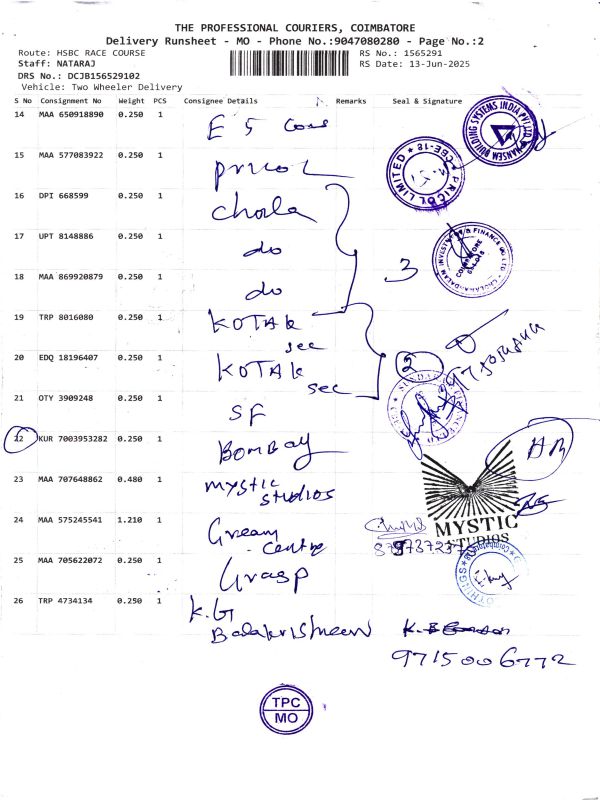 THE PROFESSIONAL COURIERS, COIMBATORE
Delivery Runsheet - MO - Phone No.:9047080280 - Page No.:2
Route: HSBC RACE COURSE RS No.: 1565291
Staff: NATARAJ RS Date: 13-Jun-2025
DRS No.: DCJB156529102
Vehicle: Two Wheeler Delivery
S No Consignment No Weight PCS Consignee Details Remarks Seal & Signature
14 MAA 650918890 0.250 1 E 5
15 MAA 577083922 0.250 1 pricol PRICOL LIMITED * CBE-18 *
16 DPI 668599 0.250 1 chola
17 UPT 8148886 0.250 1 do
18 MAA 869920879 0.250 1 do 3
19 TRP 8016080 0.250 1 KOTAK sec
20 EDQ 18196407 0.250 1 KOTAK sec 2
21 OTY 3909248 0.250 1 SF
22 KUR 7003953282 0.250 1 BOMBAY
23 MAA 707648862 0.480 1 mystic studios
MYSTIC
STUDIOS
24 MAA 575245541 1.210 1 Cream centre
25 MAA 705622072 0.250 1 Grasp
26 TRP 4734134 0.250 1 K.G
9715006772
TPC
MO